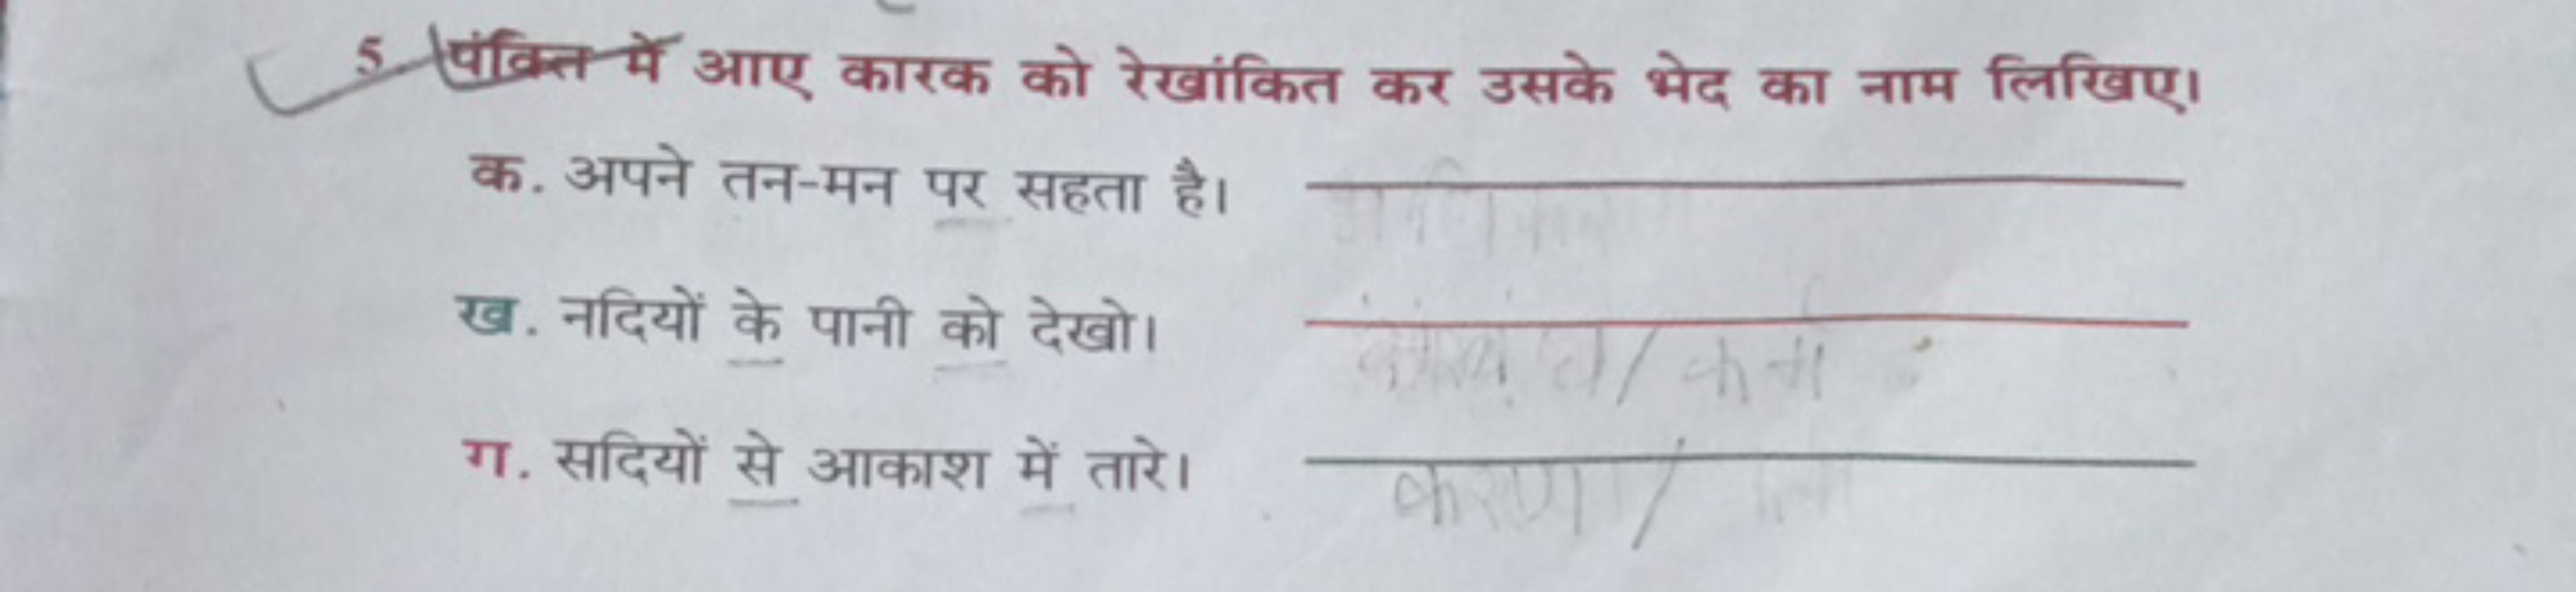 5. पंक्ति में आए कारक को रेखांकित कर उसके भेद का नाम लिखिए।
क. अपने तन-मन पर सहता है।
ख. नदियों के पानी को देखो।
/ कर्म
ग. सदियों से आकाश में तारे।
करण /